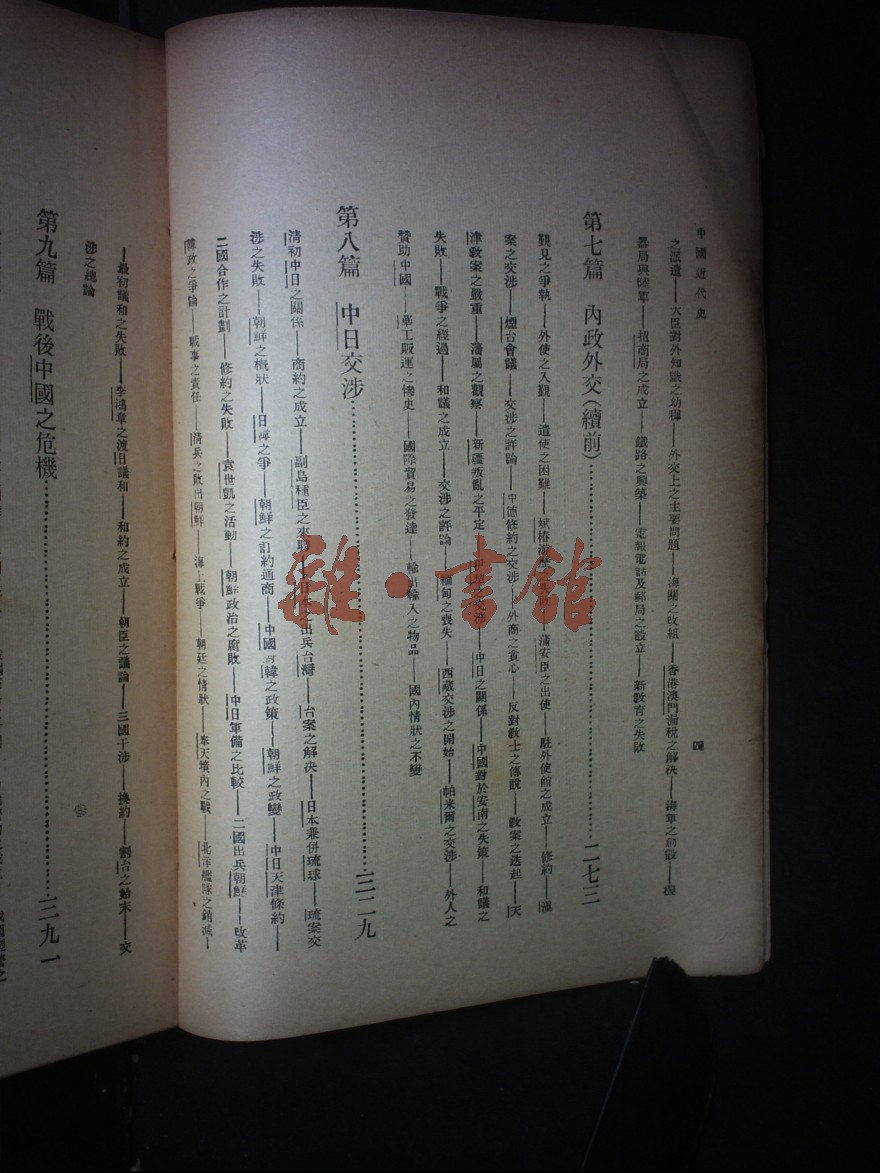 中國近代史
四
之派遣——大臣對外知識之幼稺——外交上之主要問題——海關之改組——香港澳門漏稅之解決——海軍之創設——機
器局與陸軍——招商局之成立——鐵路之興築——電報電話及郵局之設立——新敎育之失敗
第七篇 內政外交(續前)……二七三
覲見之爭執——外使之入觀——遣使之困難——斌椿游歷之失敗——蒲安臣之出使——駐外使館之成立——修約——滇
案之交涉——煙台會議——交涉之評論——中德修約之交涉——外商之貪心——反對敎士之傳說——敎案之迭起——天
津敎案之嚴重——藩屬之觀察——新疆叛亂之平定——伊犂之交涉——中日之關係——中國對於安南之失策——和議之
失敗——戰爭之經過——和議之成立——交涉之評論——緬甸之喪失——西藏交涉之開始——帕米爾之交涉——外人之
贊助中國——華工販運之慘史——國際貿易之發達——輸出輸入之物品——國內情狀之不變
第八篇 中日交涉……三二九
清初中日之關係——商約之成立——副島種臣之來聘——日本之出兵台灣——台案之解決——日本兼併琉球——琉案交
涉之失敗——朝鮮之概狀——日韓之爭——朝鮮之訂約通商——中國對韓之政策——朝鮮之政變——中日天津條約——
二國合作之計劃——修約之失敗——袁世凱之活動——朝鮮政治之腐敗——中日軍備之比較——二國出兵朝鮮——改革
韓政之爭論——戰事之責任——清兵之敗出朝鮮——海上戰爭——朝廷之情狀——奉天境內之戰——北洋艦隊之銷滅—
—最初議和之失敗——李鴻章之渡日議和——和約之成立——朝臣之議論——三國干涉——換約——割台之始末——交
涉之總論
第九篇 戰後中國之危機……三九一
雜·書館